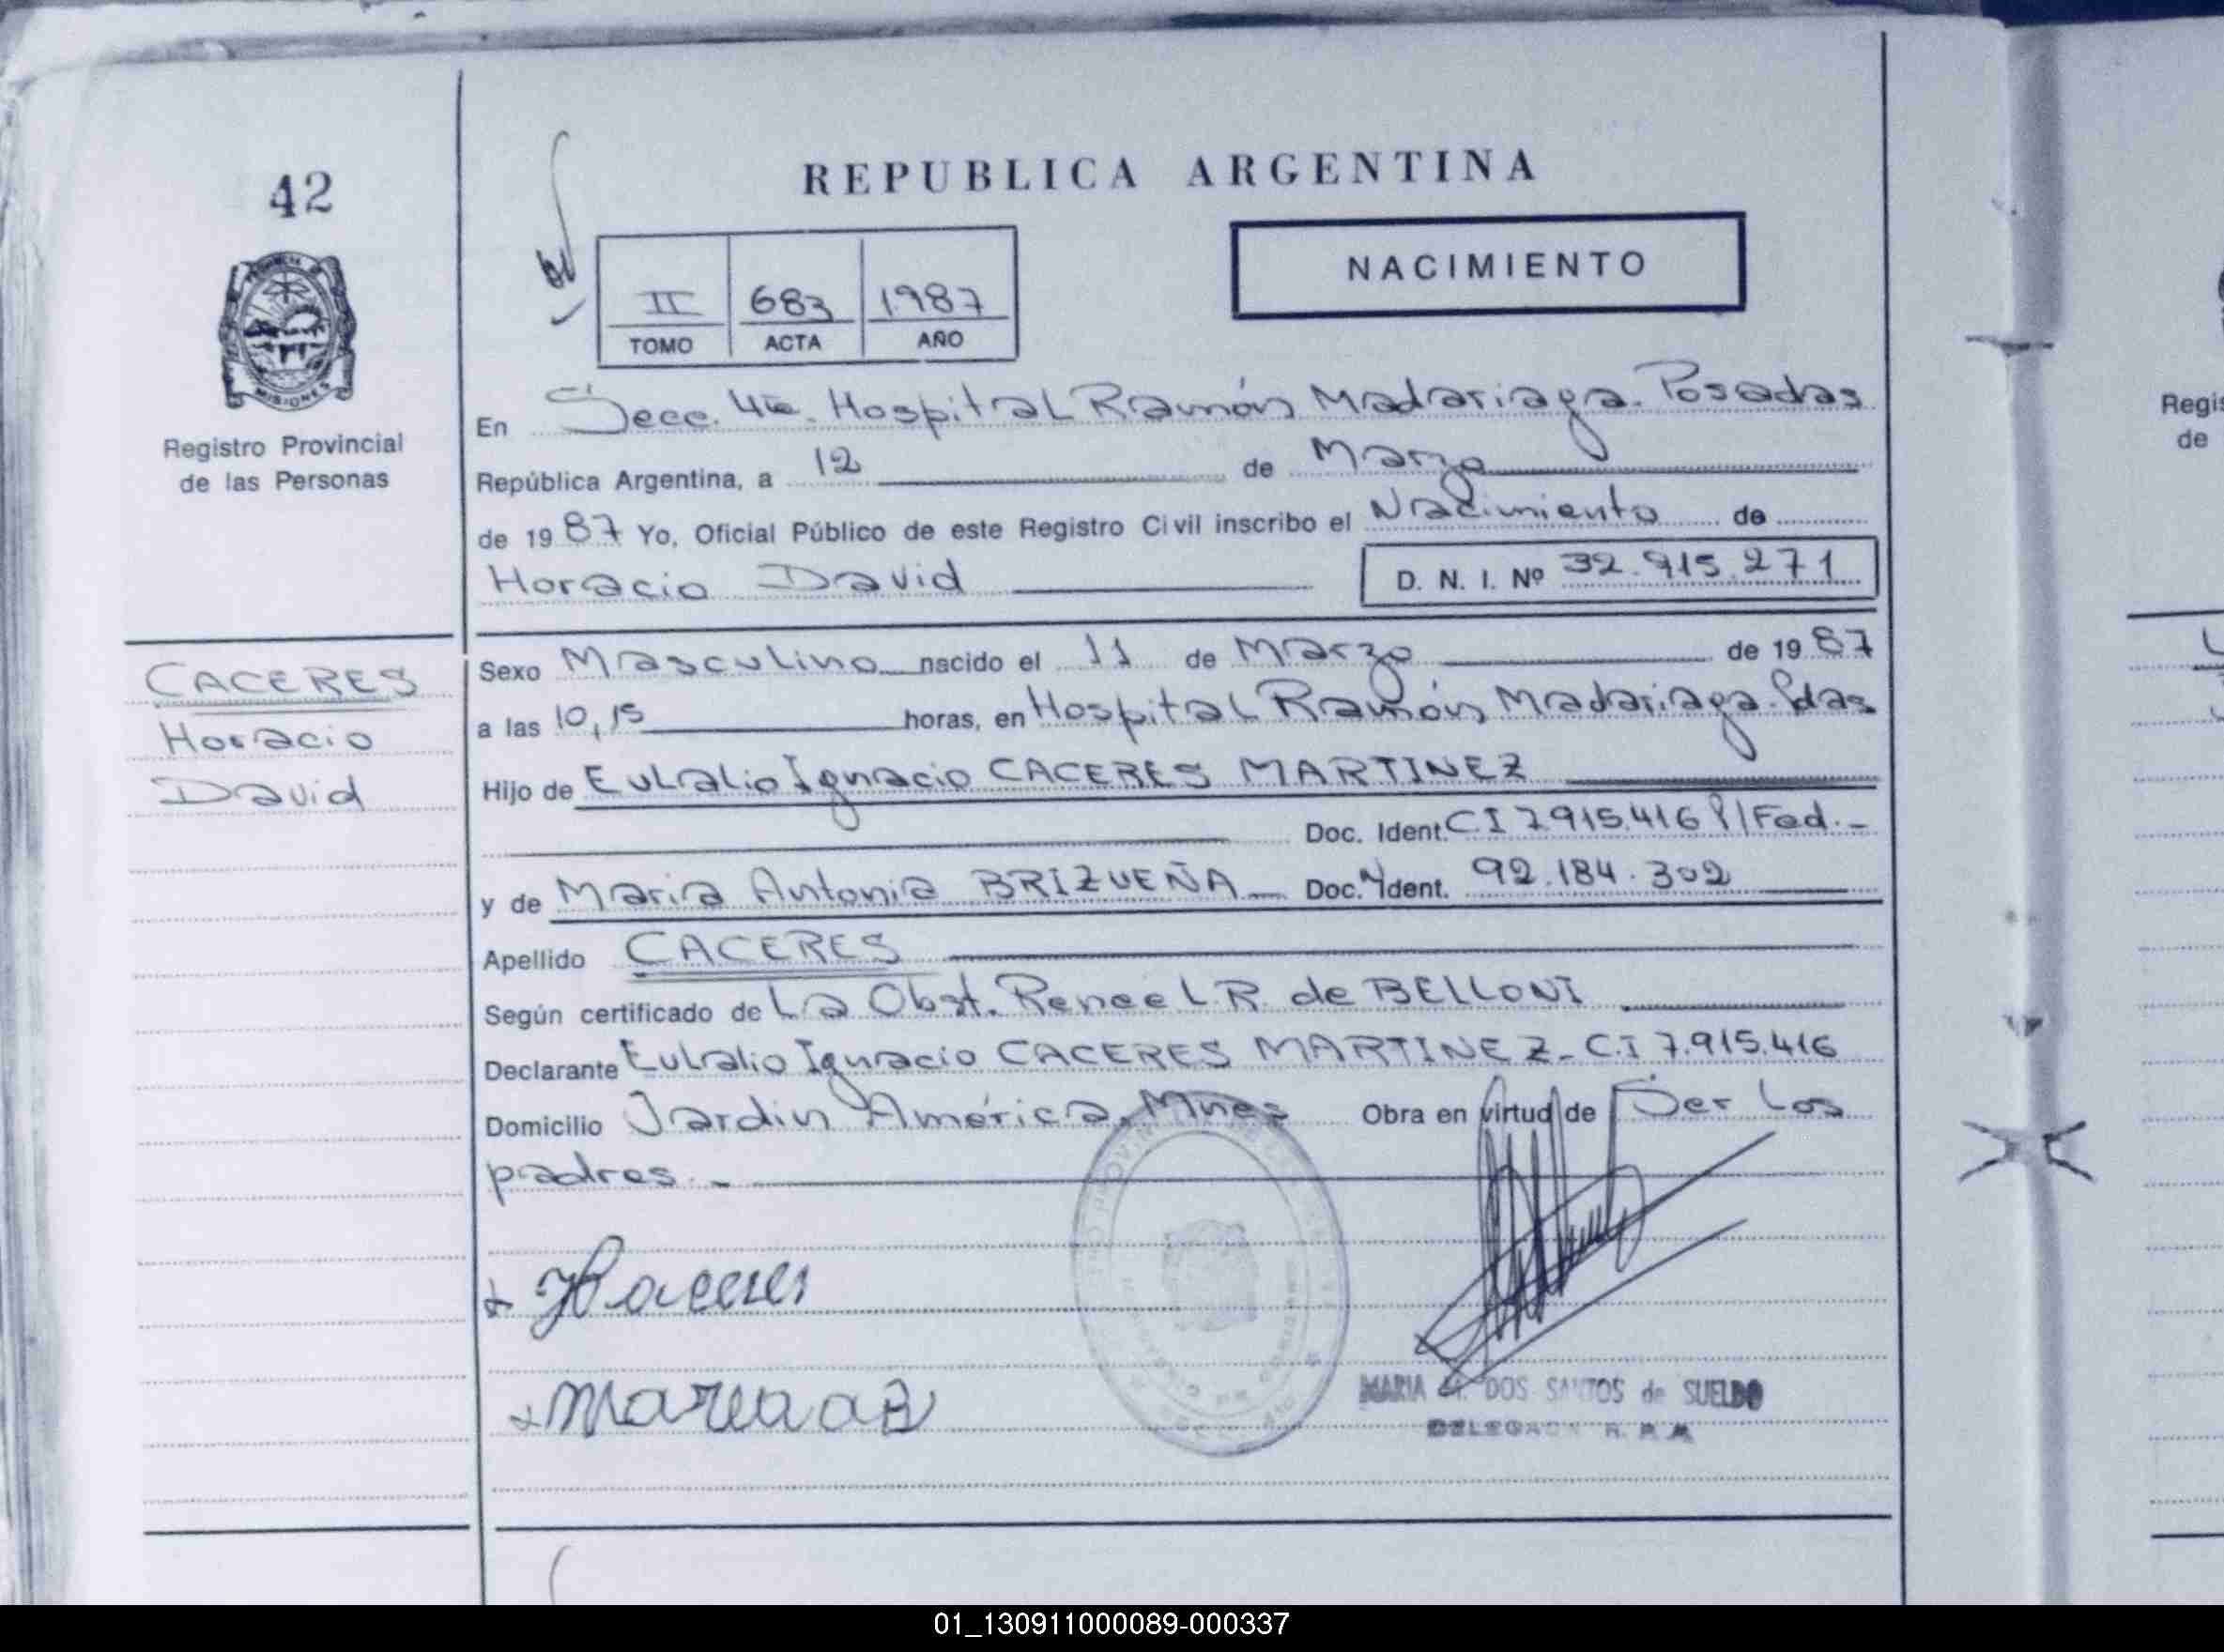 42
REPUBLICA ARGENTINA
NACIMIENTO
II 683 1987
TOMO ACTA AÑO
MISIONES
Registro Provincial
de las Personas
En Secc. 4ta. Hospital Ramón Madariaga. Posadas
República Argentina, a 12 de Marzo
de 19 87 Yo, Oficial Público de este Registro Civil inscribo el Nacimiento de
Horacio David D. N. I. Nº 32.915.271
CACERES
Horacio
David
Sexo Masculino nacido el 11 de Marzo de 19 87
a las 10,15 horas, en Hospital Ramón Madariaga. Pdas
Hijo de Eulalio Ignacio CACERES MARTINEZ
Doc. Ident. CI 7915.416 P/Fed.-
y de Maria Antonia BRIZUEÑA Doc. N Ident. 92.184.302
Apellido CACERES
Según certificado de La Obst. Renee L R de BELLONI
Declarante Eulalio Ignacio CACERES MARTINEZ - C.I 7.915.416
Domicilio Jardin América, Mnes Obra en virtud de Ser Los
padres.-
Caceres
Maria a B
MARIA DOS SANTOS de SUELDO
DELEGADA R. P.
Regis
de
01_130911000089-000337